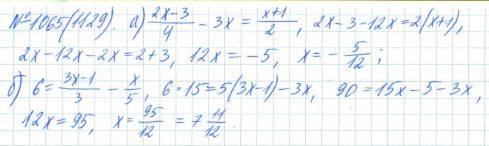 №1065(1129). а) (2x-3)/4 - 3x = (x+1)/2, 2x-3-12x=2(x+1),
2x-12x-2x=2+3, 12x=-5, x=-5/12;
б) 6=(3x-1)/3 - x/5, 6·15=5(3x-1)-3x, 90=15x-5-3x,
12x=95, x=95/12=7 11/12.